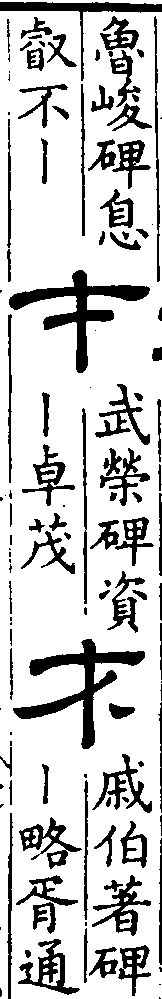 魯峻碑息
叡不丨
才
武榮碑資
丨卓茂
才
戚伯著碑
丨略胥通